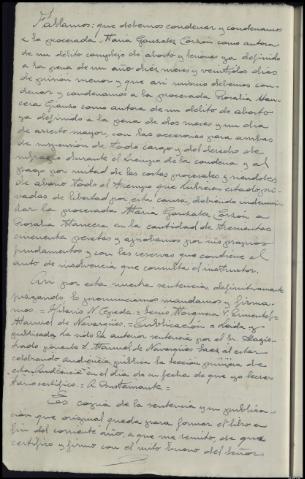 Fallamos: que debemos condenar y condenamos
a la procesada María Gonzalez Corzón como autora
de un delito complejo de aborto y lesiones ya definido
a la pena de un año diez meses y veintidos dias
de prisión menor y que asi mismo debemos con-
denar y condenamos a la procesada Rosalia Man-
cera como autora de un delito de aborto
ya definido a la pena de dos meses y un dia
de arresto mayor, con las accesorias para ambas
de suspensión de todo cargo y del derecho de
sufragio durante el tiempo de la condena y al
pago por mitad de las costas procesales siendoles
de abono todo el tiempo que hubieren estado pri-
vadas de libertad por esta causa, debiendo indemni-
zar la procesada María Gonzalez Corzón a
Rosalia Mancera en la cantidad de
cincuenta pesetas y aprobamos por sus propios
fundamentos y con las reservas que contiene el
auto de insolvencia que consulta el instructor.
Asi por esta nuestra sentencia definitivamente
juzgando, lo pronunciamos mandamos y firma-
mos = Hilario N. Cepeda =
Manuel de Navarrios = Publicación = Leida y
publicada ha sido la anterior sentencia por el Sr. Magis-
trado ponente D. Manuel de Navarrios Saez al estar
celebrando audiencia publica la Sección primera de
esta Audiencia en el dia de su fecha de que yo Secre-
tario certifico = A. Bustamante =
Es copia de la sentencia y su publica-
ción que original queda para formar el libro en
fin del corriente año, a que me remito, de que
certifico y firmo con el visto bueno del Señor